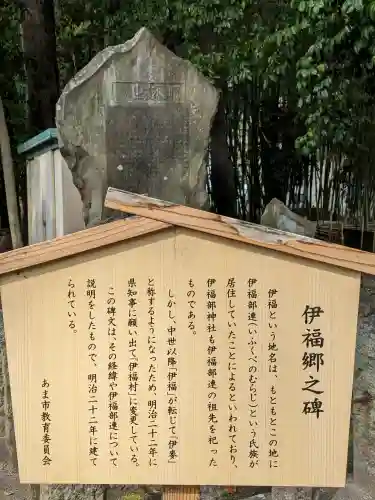 伊福郷之碑
伊福という地名は、もともとこの地に
伊福部連（いふくべのむらじ）という氏族が
居住していたことによるといわれており、
伊福部神社も伊福部連の祖先を祀った
ものである。
しかし、中世以降「伊福」が転じて「伊麥」
と称するようになったため、明治二十二年に
県知事に願い出て「伊福村」に変更している。
この碑文は、その経緯や伊福部連について
説明をしたもので、明治二十二年に建て
られている。
あま市教育委員会